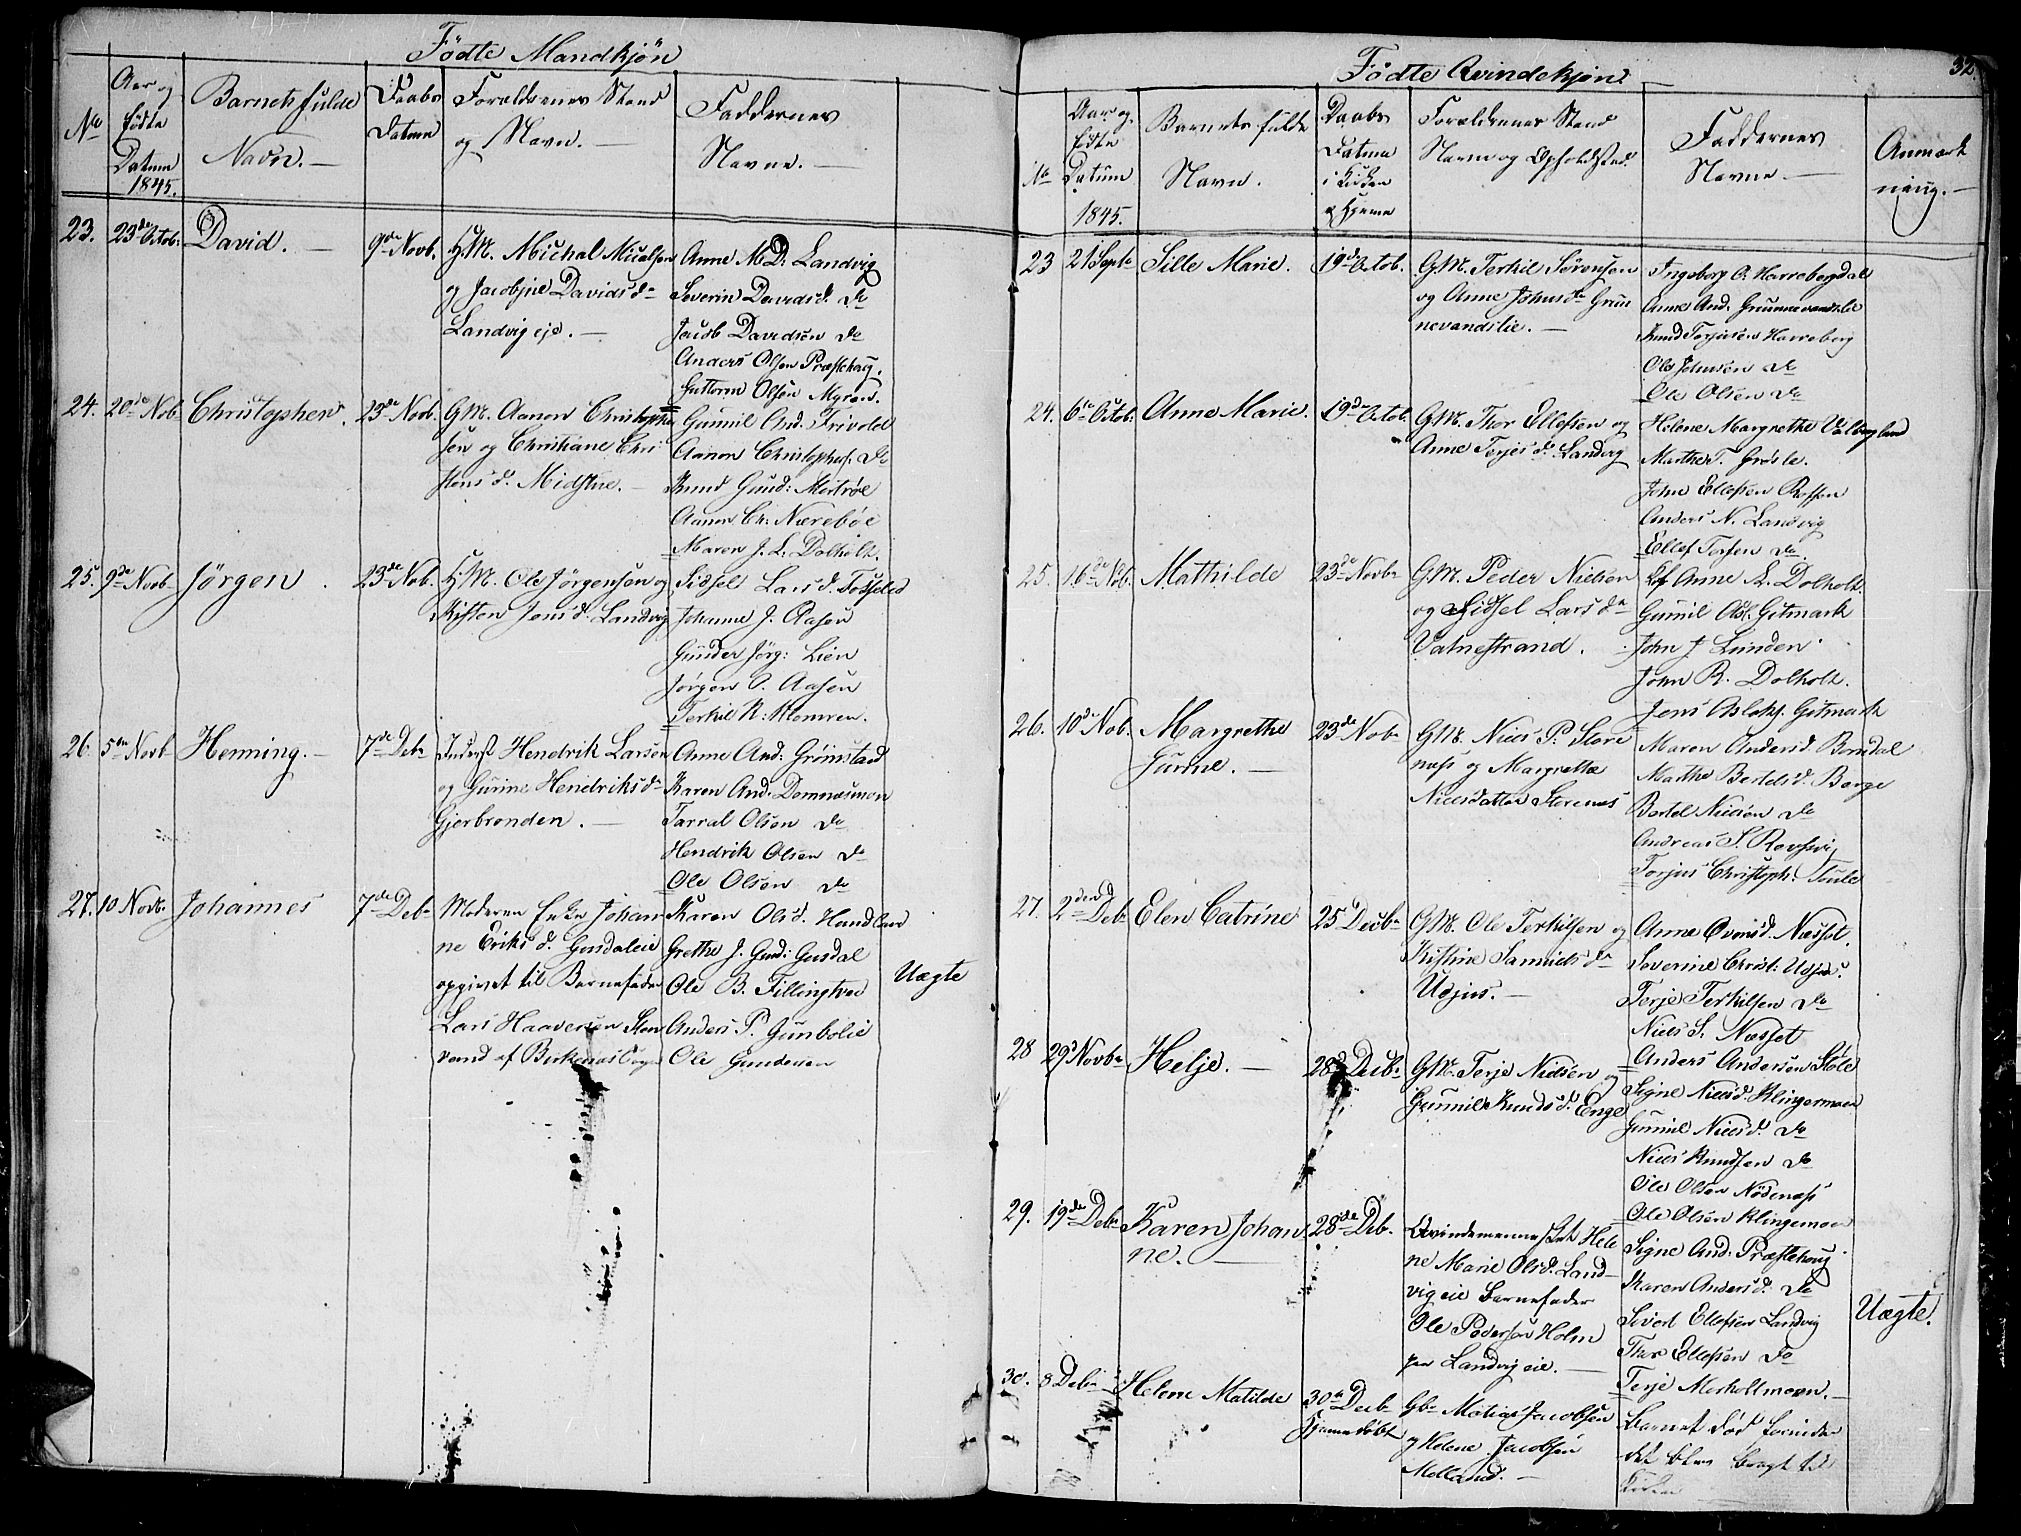 Fødte Mandkjøn
No
Aar og
fødte
Datum
1845.
Barnets fulde
Navn.
Daabs
Datum
Forældrenes Stand
og Navn.
Faddernes
Navne.
23.
23de Octob:
David.
9de Novb.
G.M. Michal Micalsen
og Jacobine Davidsd.
Landvig eje.
Anne M. D: Landvig
Severin Davidsd. do
Jacob Davidsøn do
Anders Olsen Præstehaug.
Guttorm Olsøn Myren.
24.
20de Nob
Christopher.
23de Novb.
G.M. Aanon Christopher
sen og Christiane Chri
stensd. Midstue.
Gunnil And. Frivold
Aanon Christophers. do
Knud Gund: Mestrøe
Aanon Ch: Nærebøe
Maren J. L. Dolholt.
25.
9de Novb
Jørgen
23de Nob.
G.M. Ole Jørgensen og
Kisten Jensd. Landvig
Sidsel Larsd. Fosseled
Johanne J. Aasen
Gunder Jörg: Lien
Jörgen O. Aasen
Terkil K: Momren.
26.
5te Novb
Henning.
7de Deb
Inderst Hendrik Larsen
og Gurine Hendriksd
Gjerbronden.
Anne And: Grömstad
Karen And: Domnesmoen
Tarral Olsen do
Hendrik Olsen do
Ole Olsen do
27.
10 Novb.
Johannes
7de Deb
Moderen Enke Johan
ne Eriksd. Gusdaleie
opgivet til Barnefader
Lars Haaversen Sten
vand af Birkenæs Sogn
Karen Olsd. Handland
Grethe J. Gund: Gusdal
Ole B. Tillingtvet
Anders P. Gunbolie
Ole Gundersen
Uægte
32.
Fødte Qvindekjøn
No
Aar og
fødte
Datum
1845.
Barnets fulde
Navn.
Daabs
Datum
i Kirken
og Hjemme
Forældrenes Stand
Navn og Opholdsted.
Faddernes
Navne
Anmærk
ning.
23
21 Septe
Sille Marie.
19d Octob.
G.M. Terkil Sørensen
og Anne Johnsd. Grun
nevandslie.
Ingeborg O. Harrebergdal
Anne And. Grunnevandslie
Knud Torjusen Harreberg
Ole Johnsen do
Ole Olsen do
24.
6te Octob.
Anne Marie.
19d Octob.
G.M. Thor Ellefsen og
Anne Terjesd. Landvig
Helene Margrethe Valbegland
Marthe T. Grøsle.
John Ellefsen Rossen
Anders N. Landvig
Ellef Torsen do.
25.
16de Nob.
Mathilde
23de Novb
G.M. Peder Nielsen
og Sidsel Larsd
Vatnestrand.
Anne L. Dolholt.
Gunnil Osl. Gitmark
John J Lunden
John R. Dolholt.
Jens Aslaks. Gitmark
26.
10de Nob.
Margrethe
Gurine.
23de Nob
G.M. Niels P. Store
næss og Margrethe
Nielsdatter Storenæs
Maren Andersd. Bendal
Marthe Bertelsd. Berge
Bertel Nielsen do
Andreas S. Revesvig
Torjus Christoph. Toule
27.
2den Deb
Elen Catrine
25 Decb
G.M. Ole Terkilsen og
Kistine Samuelsd
Udjus.
Anne Evensd. Næsset.
Severine Christ: Udjus.
Terje Terkilsen do
Niels S. Næsset
Anders Andersen Støle
28
29d Novb
Helje.
28d Decb
G.M. Terje Nielsen og
Gunnil Knudsd. Enge
Signe Nielsd. Klingermoen
Gunnil Nielsd. do
Niels Knudsen do
Ole Olsen Nødenæss
Ole Olsen Klingemoen
29.
19de Deb
Karen Johan
ne.
28de Deb.
Qvindemennesket Hele
ne Marie Olsd. Land
vig eie Barnefader
Ole Pedersen Holm
paa Landvig eie.
Signe And: Præstehaug
Karen Andersd. do
Sivert Ellefsen Landvig
Thor Ellefsen do
Terje Morholtmoen.
Uægte.
30.
8 Deb
Helene Matilde
30te Decb
Hjemmedøbt
Gb Matias Jacobsen
og Helene Jacobsen
Molland.
Barnet død forinden
det blev bragt til
Kirken